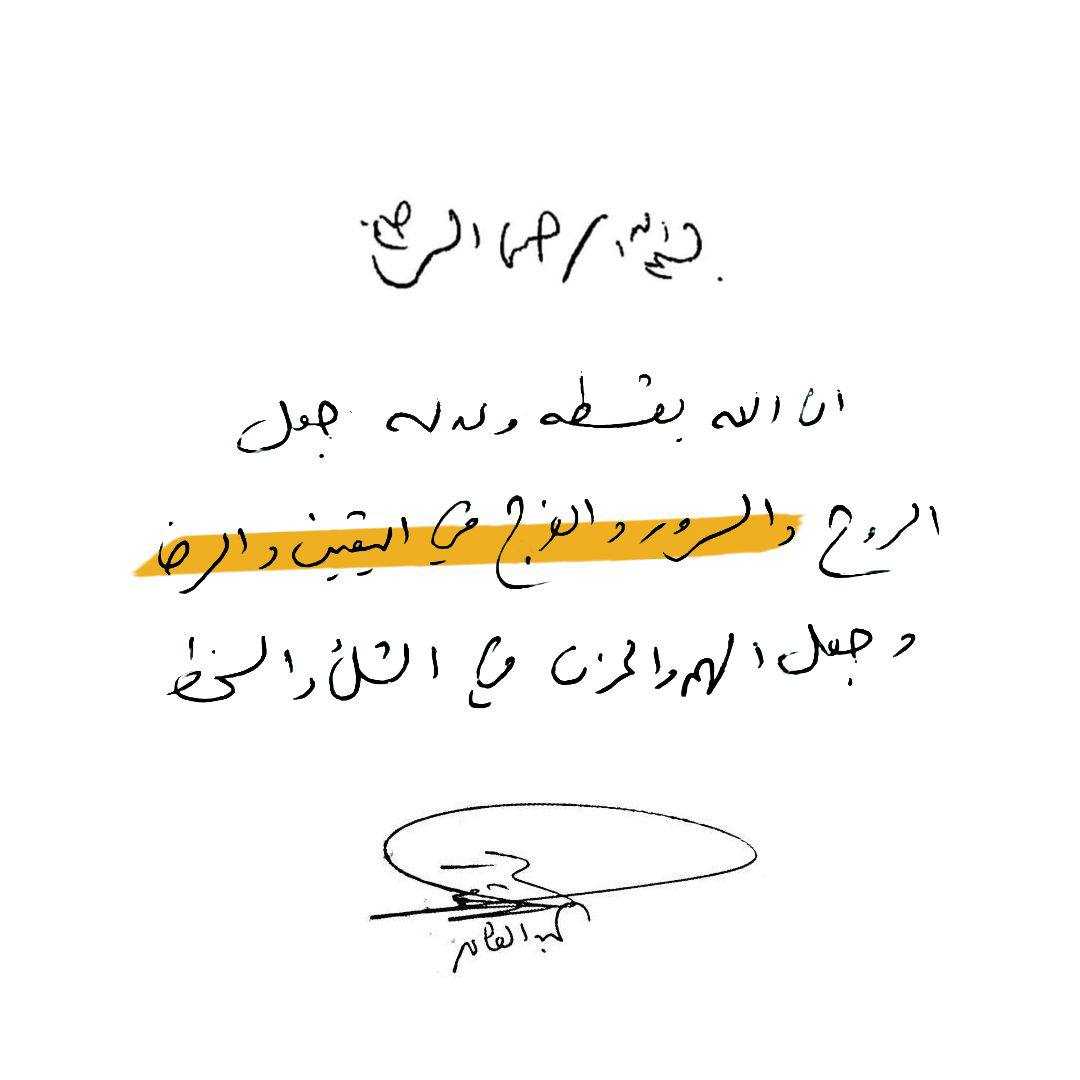 بسم الله الرحمن الرحيم
ان الله بقسطه وعدله جعل
الروح والسرور والفرج في اليقين والرضا
وجعل الهم والحزن في الشك والسخط
عبد القادر